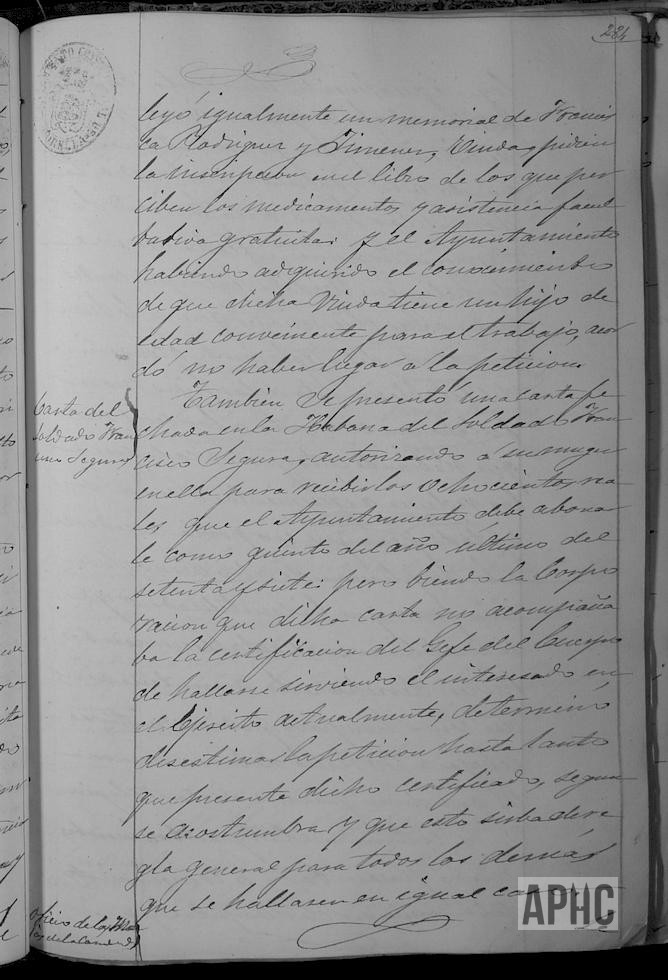 284
leyó igualmente un memorial de Francis
ca Rodriguez y Jimenez, Viuda, pidien
la inscripcion en el libro de los que per
ciben los medicamentos y asistencia facul
tativa gratuita: y el Ayuntamiento
habiendo adquirido el conocimiento
de que dicha Viuda tiene un hijo de
edad conveniente para el trabajo, acor
dó no haber lugar á la peticion.
Carta del
Soldado Fran
cisco Segura
Tambien se presentó una carta fe
chada en la Habana del Soldado Fran
cisco Segura, autorizando á su muger
en ella para recibir los ochocientos rea
les que el Ayuntamiento debe abonar
le como quinto del año último del
setenta y siete: pero biendo la Corpo
racion que dicha carta no acompaña
ba la certificacion del Gefe del Cuerpo
de hallarse sirviendo el interesado en
el Ejército actualmente, determinó
desestimar la peticion hasta tanto
que presente dicho certificado, segun
se acostumbra y que esto sirba de re
gla general para todos los demás
que se hallasen en igual caso.
oficio de la
APHC